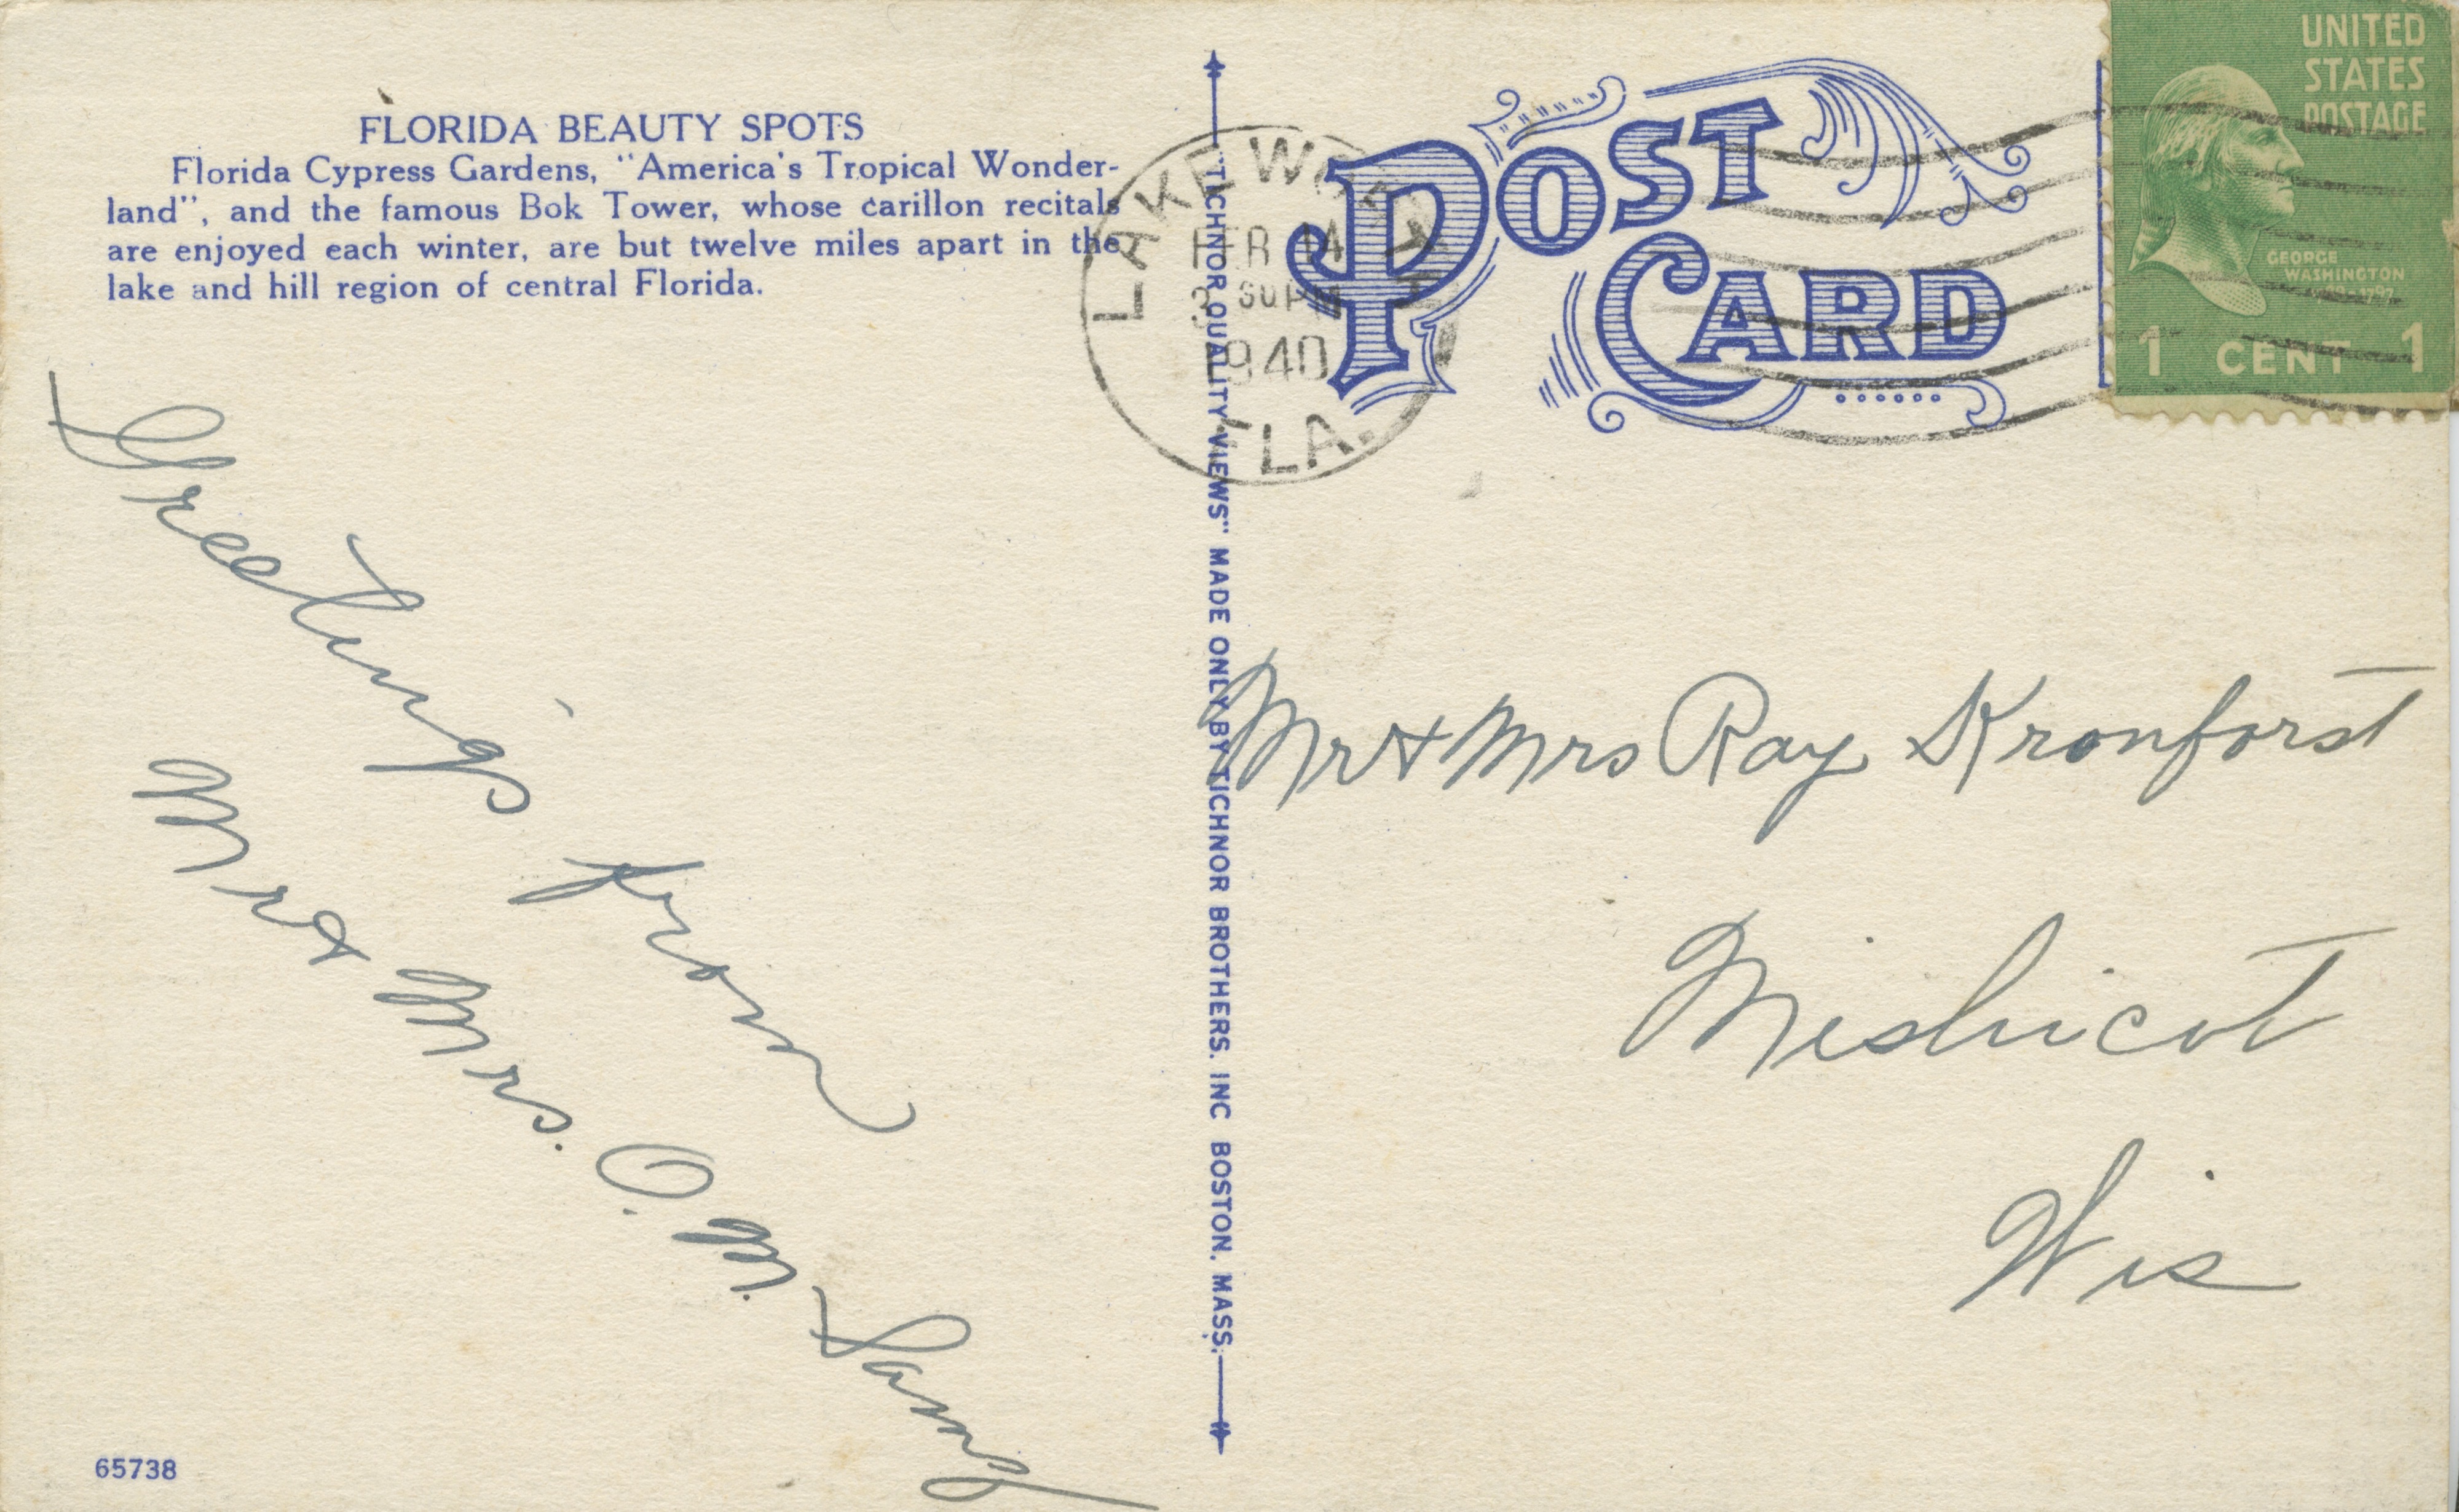 FLORIDA BEAUTY SPOTS
Florida Cypress Gardens, "America's Tropical Wonder-
land", and the famous Bok Tower, whose carillon recitals
are enjoyed each winter, are but twelve miles apart in the
lake and hill region of central Florida.
Greetings from
Mr & Mrs. O. M.
65738
"TICHNOR QUALITY VIEWS" MADE ONLY BY TICHNOR BROTHERS. INC BOSTON. MASS.
POST
CARD
LAKE WORTH
FEB 14
3 30 PM
1940
FLA.
UNITED
STATES
POSTAGE
GEORGE
WASHINGTON
1 CENT 1
Mr & Mrs Ray Kronforst
Mishicot
Wis